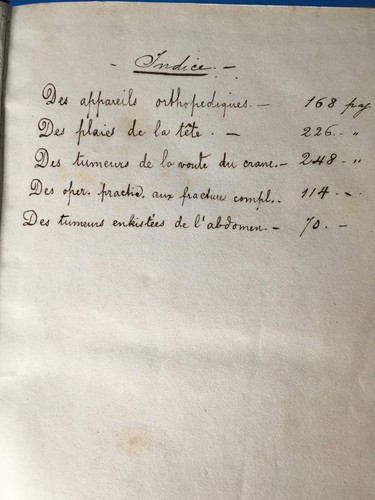 - Indice. -
Des appareils orthopediques. - 168 pag
Des plaies de la tête. - 226. - "
Des tumeurs de la voute du crane. - 248 - "
Des oper. practic. aux fracture compl.. 114 - -
Des tumeurs enkistées de l'abdomen. - 70. -